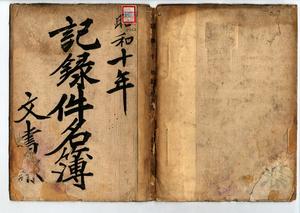 昭和十年
記録件名簿
文書